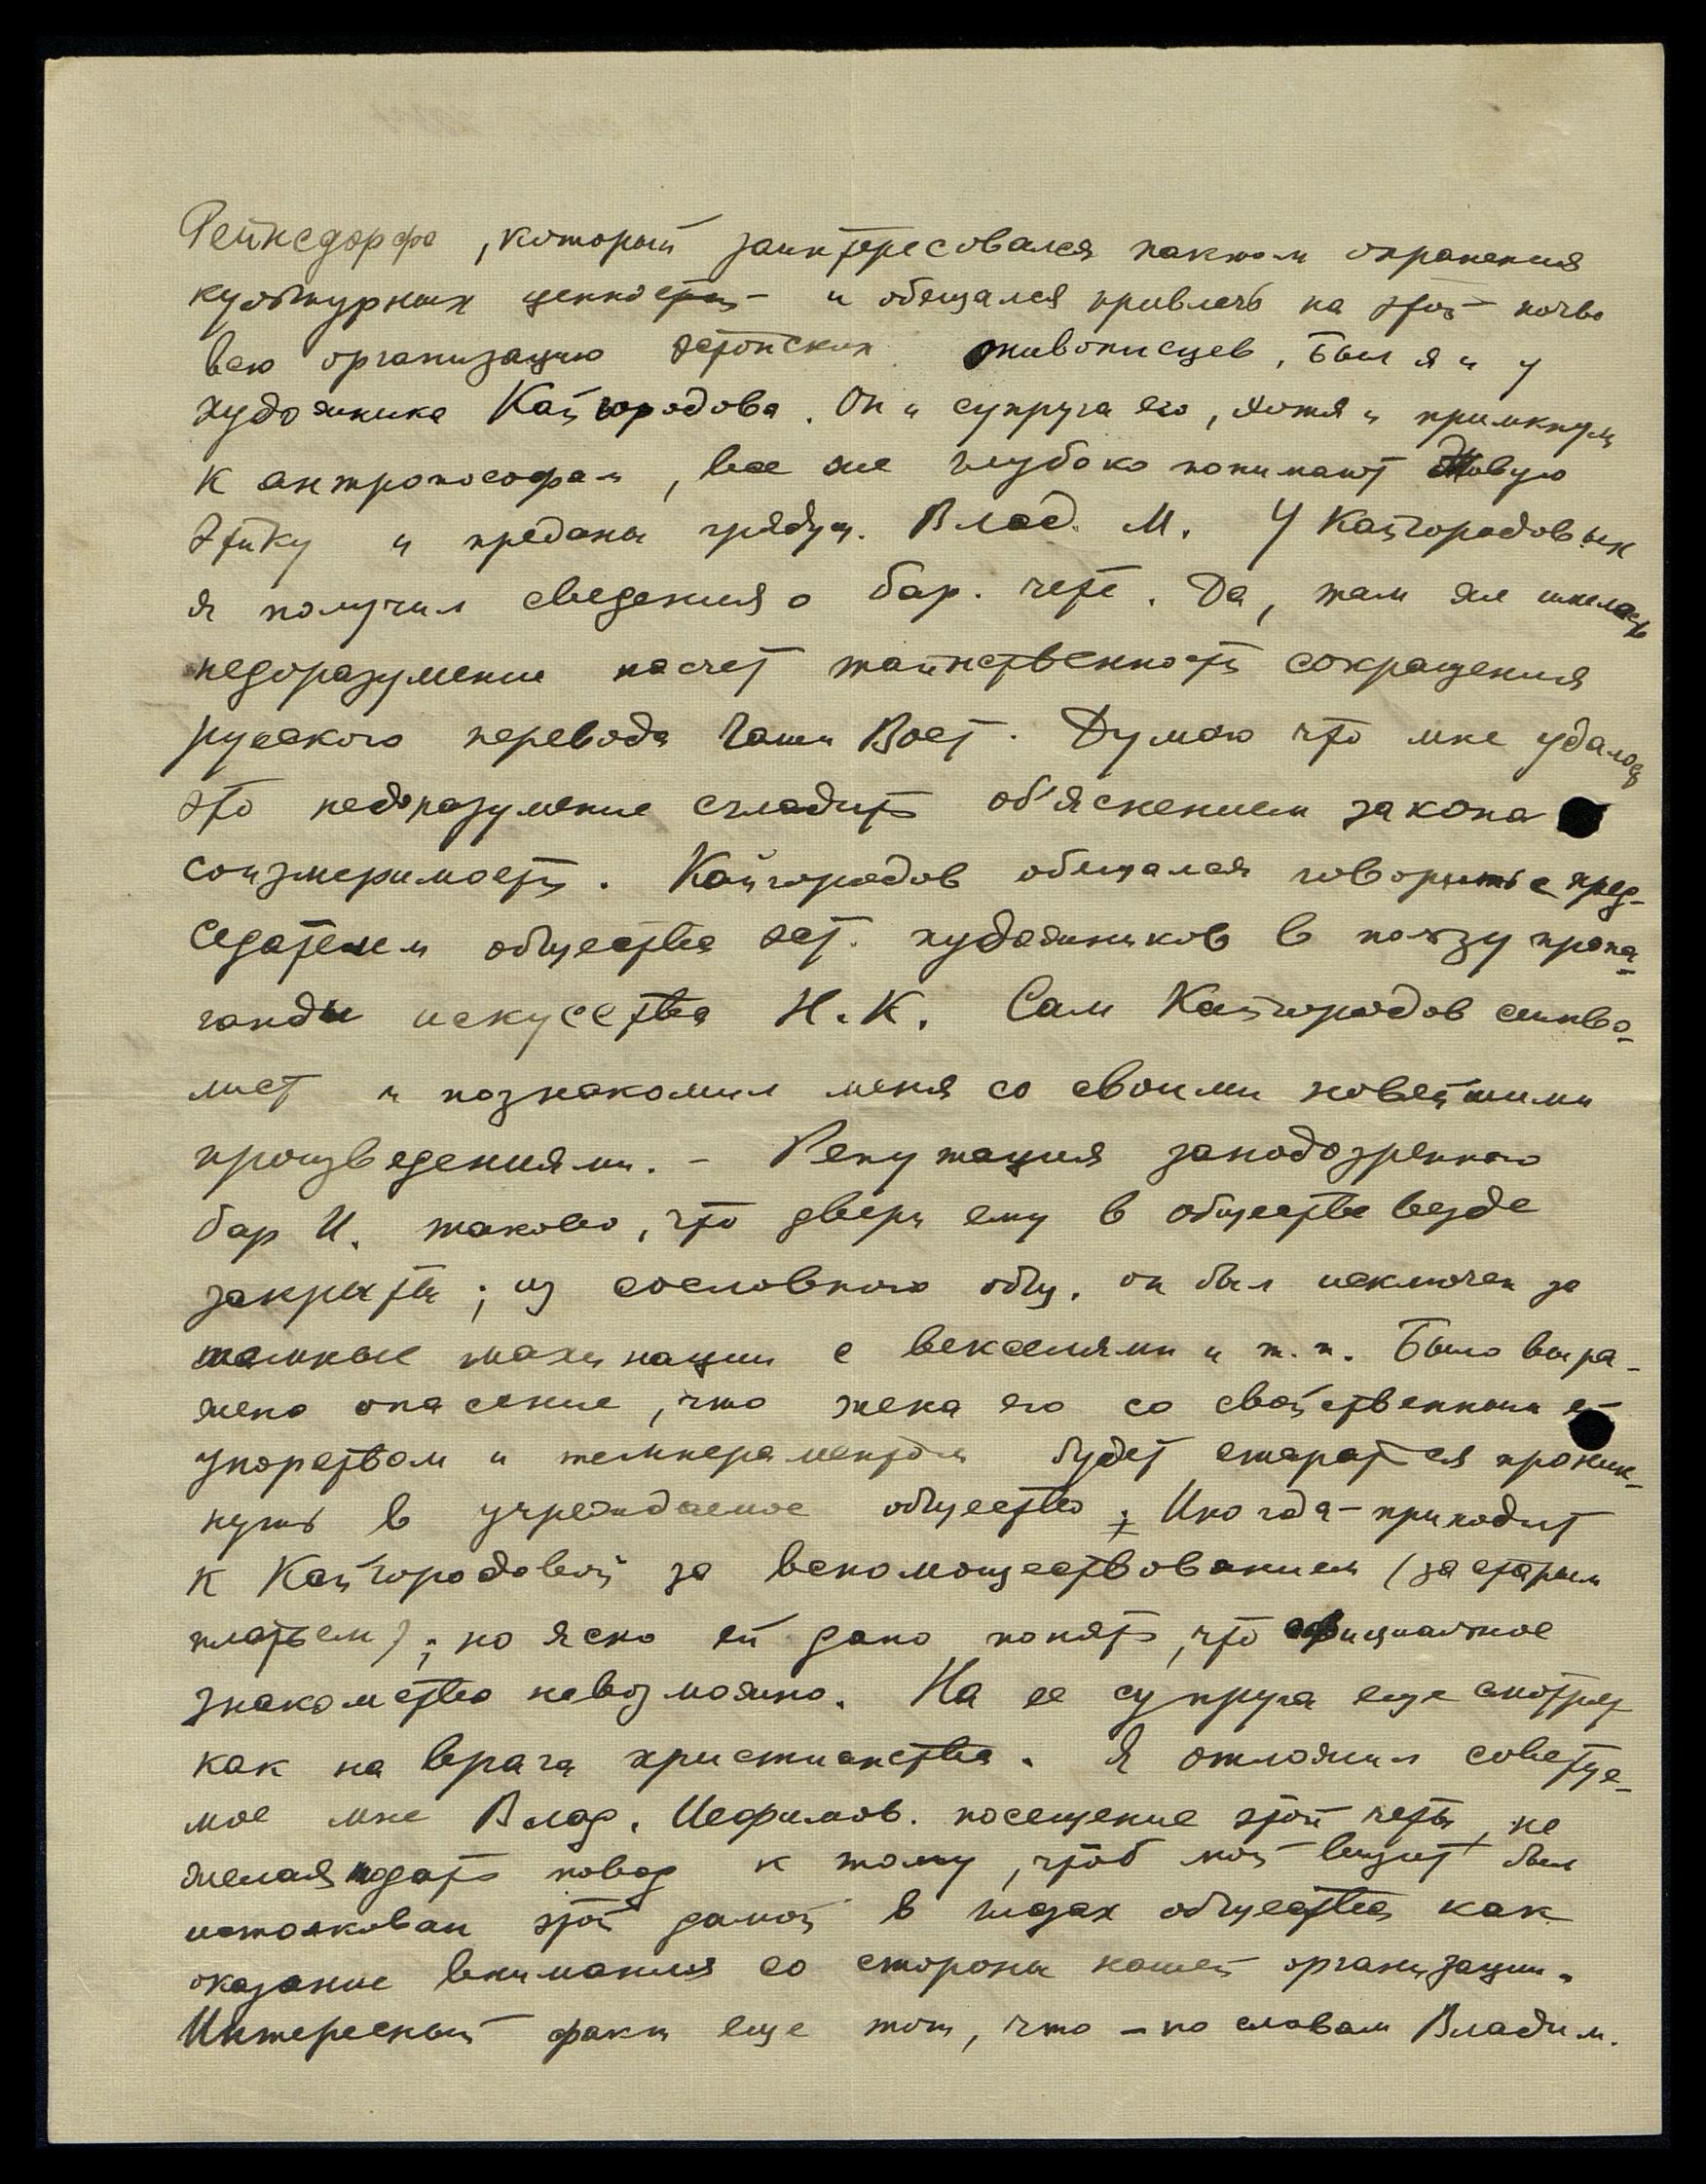 Рейнсдорфа, который заинтересовался пактом охранения
культурных ценностей и обещался привлечь на этой почве
всю организацию эстонских живописцев. Был я и у
художника Кайгородова. Он и супруга его, хотя и примкнули
к антропософам, все же глубоко понимают Живую
Этику и преданы грядущ. Влад. М. У Кайгородовых
я получил сведения о бар. чете. Да, там же имелось
недоразумение насчет таинственности сокращения
русского перевода Чаши Вост. Думаю что мне удалось
это недоразумение сгладить об'яснением закона
соизмеримости. Кайгородов обещался говорить с пред-
седателем общества эст. художников в пользу пропа-
ганды искусства Н.К. Сам Кайгородов симво-
лист и познакомил меня со своими новейшими
произведениями. – Репутация заподозренного
бар И. такова, что двери ему в обществе везде
закрыты; из сословного общ. он был исключен за
темные махинации с векселями и т.п. Было выра-
жено опасение, что жена его со свойственным ей
упорством и темпераментом будет стараться проник-
нуть в учреждаемое общество; Иногда – приходит
к Кайгородовой за вспомоществованием (за старым
платьем); но ясно ей дано понять, что официальное
знакомство невозможно. На ее супруга еще смотрят
как на врага христианства. Я отклонил советуе-
мое мне Влад. Иефимов. посещение этой четы, не
желая подать повод к тому, чтоб мой визит был
истолкован этой дамой в глазах общества как
оказание внимания со стороны нашей организации.
Интересный факт еще тот, что – по словам Владим.